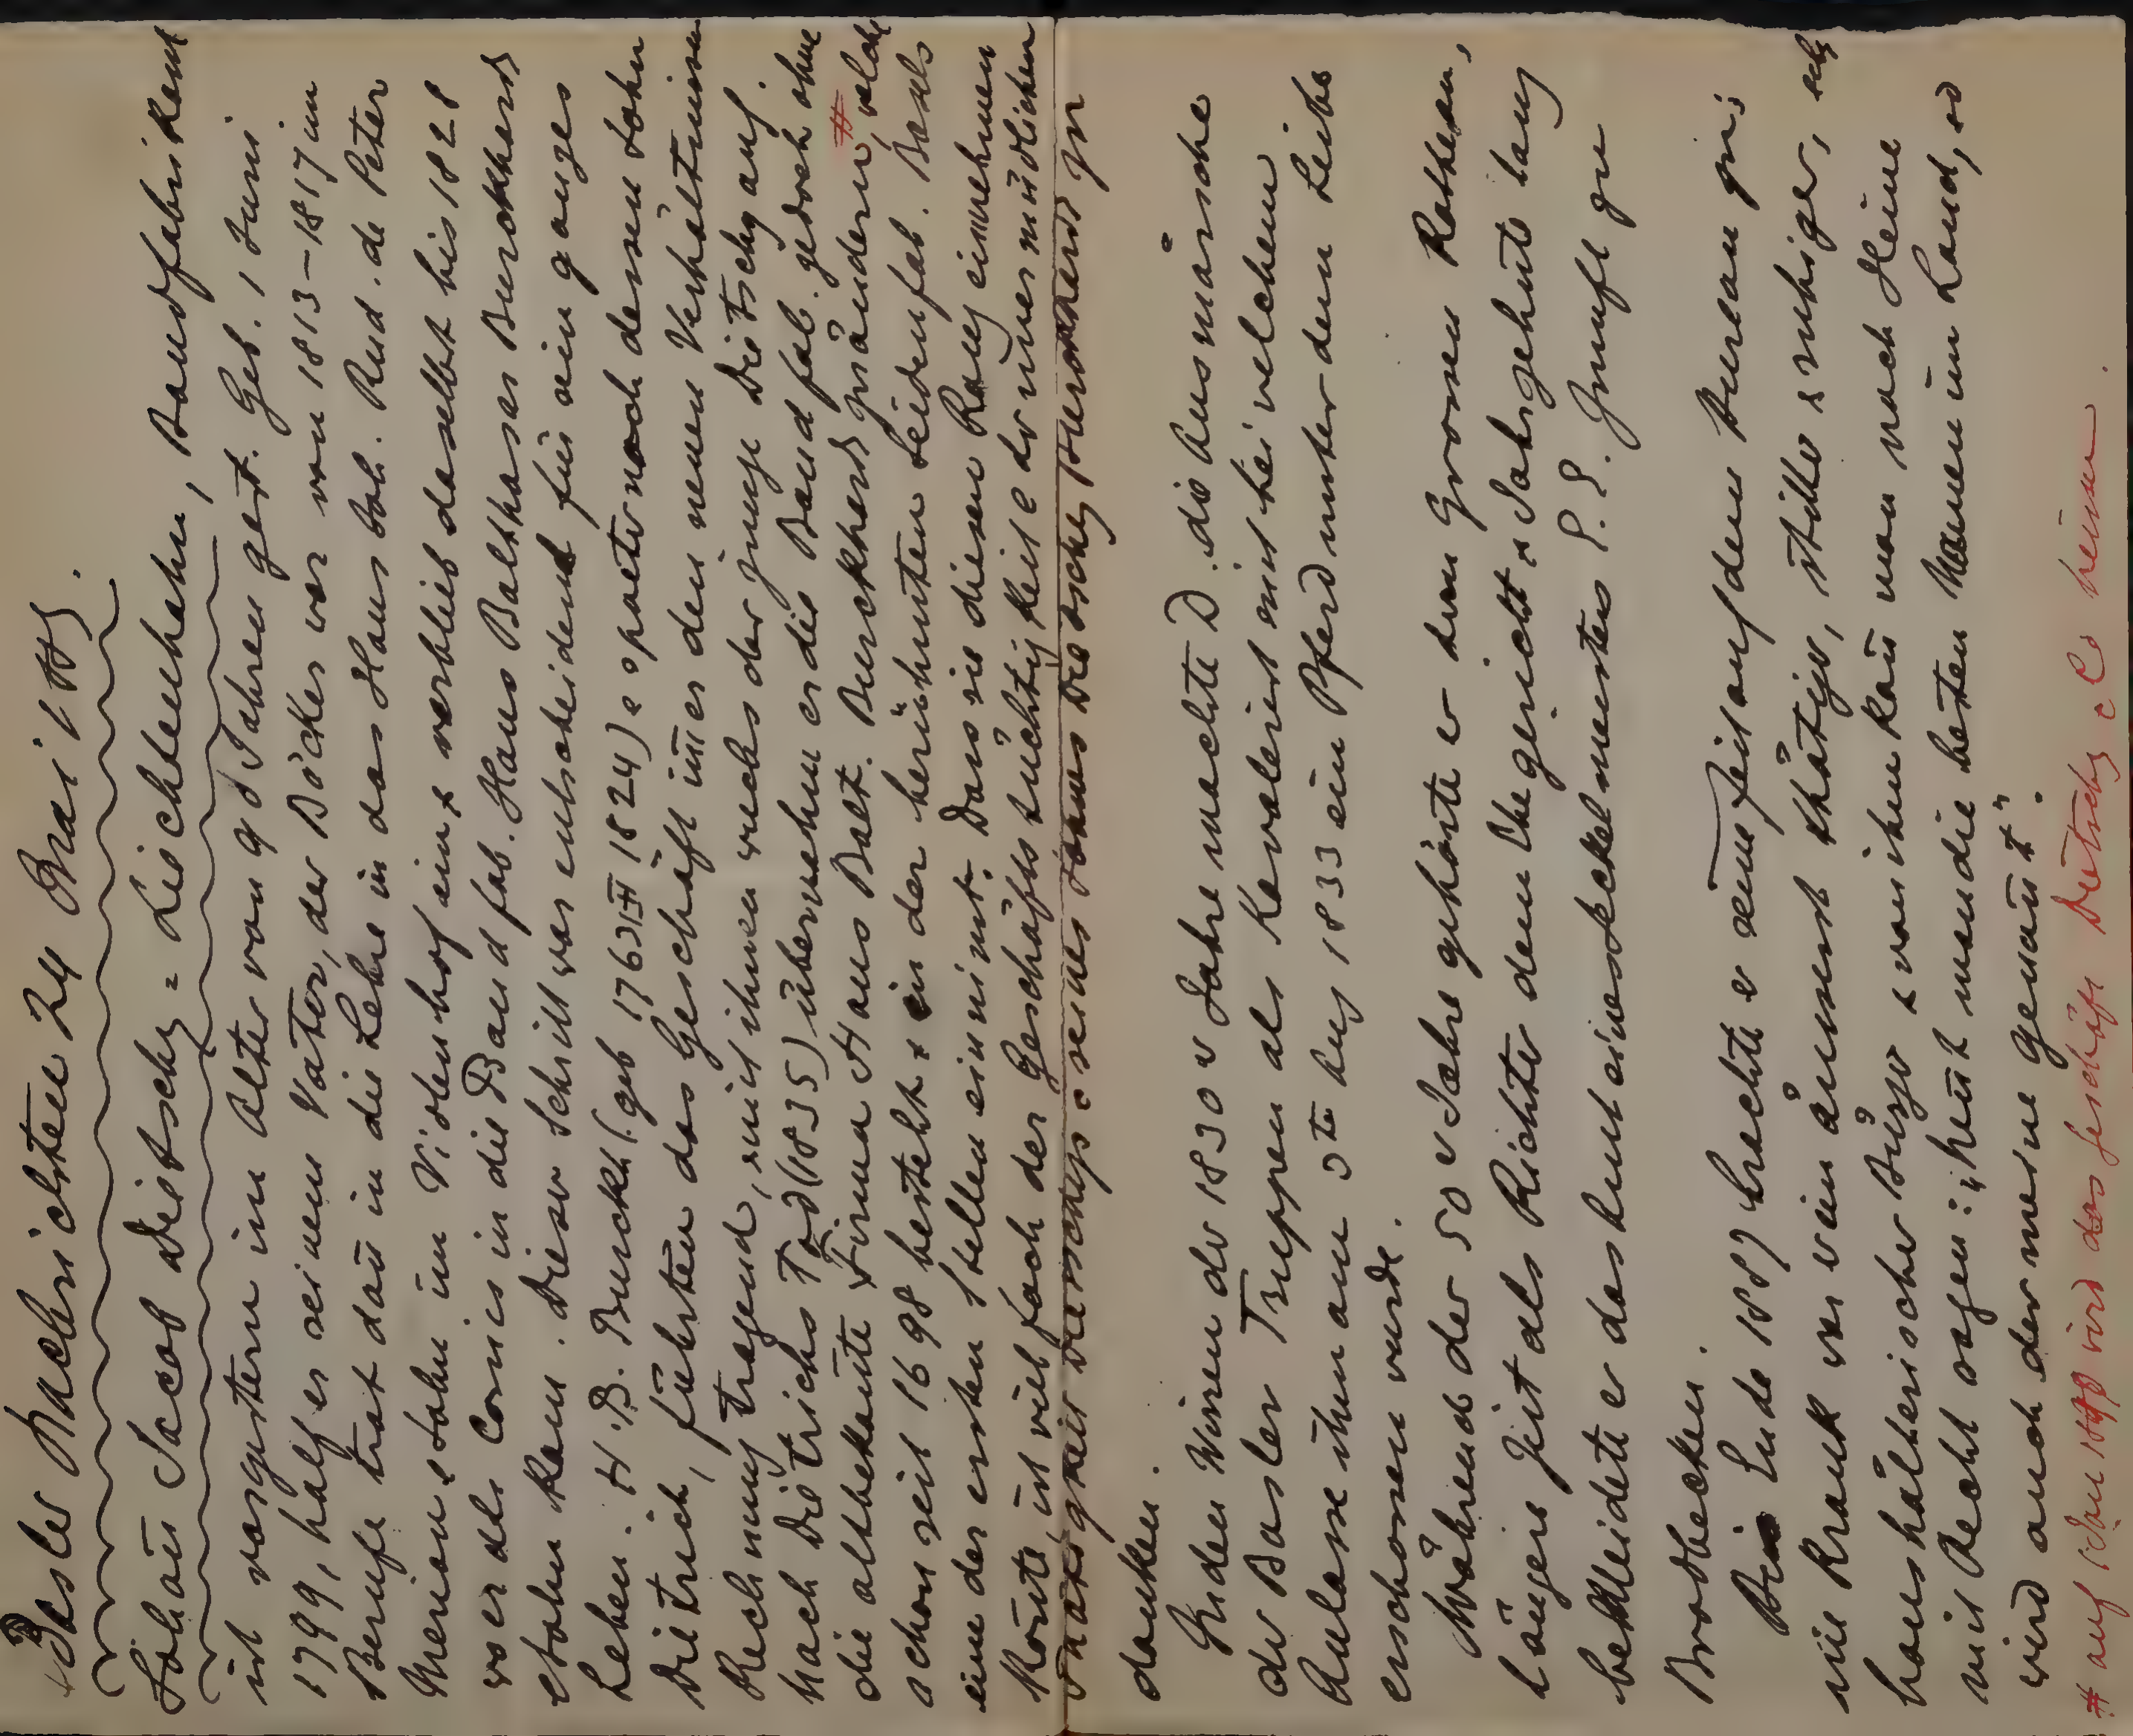 Basler Nachrichten 24 Mai 188
Johañ Jacob Dietschy-Lischenhahn, Bandfabrikant
ist vorgestern im Alter von 90 Jahren gest. Geb. 1 Juni
1799, half er seinem Vater, der Bäcker war von 1813–1817 im
Berufe trat dañ in die Lehre in das Haus Joh. Rud. de Peter
Merian & Sohn im Videnhof ein & verblieb daselbst bis 1828
wo er als Comis in die Bandfab. Hans Balthasar Burckhard
& Sohn kam. Dieser Schritt war entscheidend für sein ganzes
Leben. H. B. Burckh. (geb 1763 1824) & spaeter noch dessen Sohn
Dietrich, führten das Geschäft im̄er den neuen Verhältnissen
Rechnung tragend, mit ihnen wuchs der junge Dietschy auf.
Nach Dietrichs Tod (1835) übernahm er die Bandfab. jedoch ohne
die altbekañte Firma Hans Balt. Burckhard zu ändern, # welche
schon seit 1698 besteht & in der berühmten Seidenfab. Basels
eine der ersten Stellen einnimt. Dass sie diesen Rang einnehmen
koñte, ist vielfach der Geschäftstüchtigkeit & der unermüdlichen
Thätigkeit Dietschys & seines Sohnes Dietschy Burckhard zu
danken.
In den Wirren der 1830er Jahre machte D. die Ausmärsche
der Basler Truppen als Kavalerist mit bei welchem
Anlasse ihm am 3ten Aug 1833 ein Pferd unter dem Leibe
erschossen wurde.
Während der 50er Jahre gehörte er dem Grossen Rathe an,
längere Zeit als Richter dem Ehegericht & Jahrzehnte lang
bekleidete er das Amt eines Seckelmeisters E. E. Zunft zu
Brodbecken.
Bis Ende 1887 brachte er seine Zeit auf dem Bureau zu;
nie krank war er ein äusserst thätiger, stiller & ruhiger, sehr
haushälterischer Bürger & von ihm kañ man nach Heine
mit Recht sagen: „heut man die besten Namen im Land, so
wird auch der meine genañt".
# auf (dan 1899 wird das Geschäft Dietschy & Co heissen